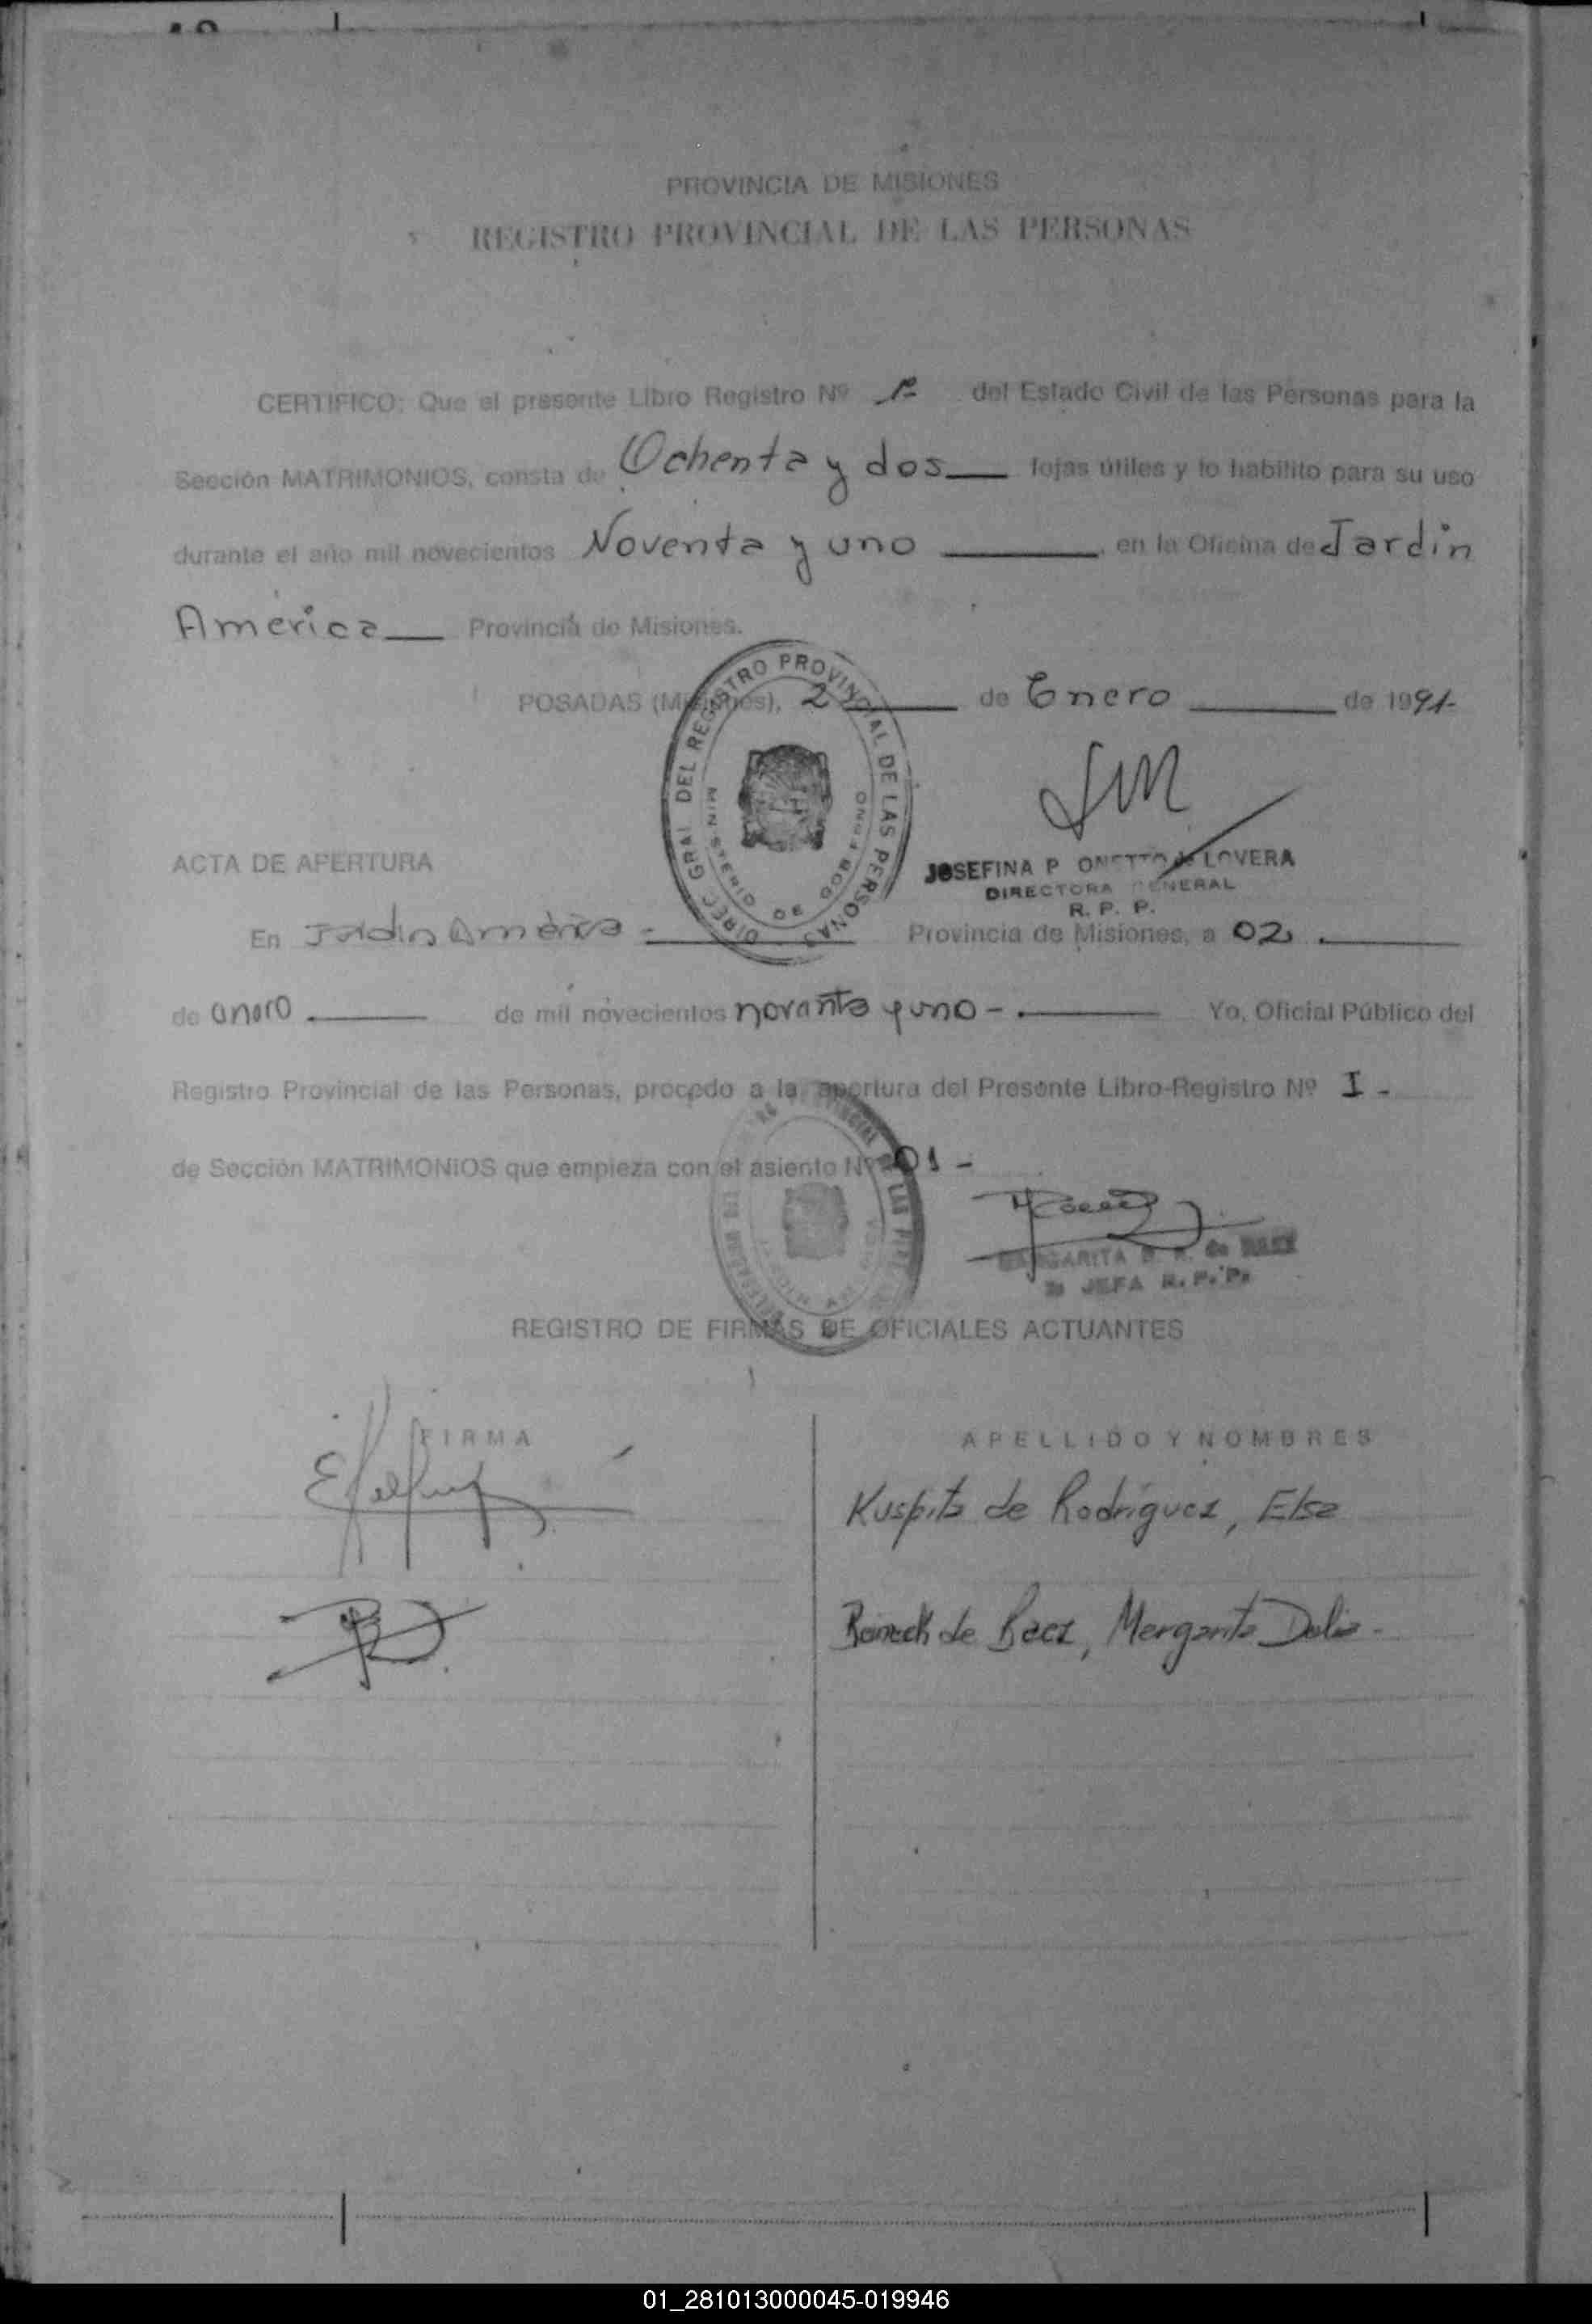 PROVINCIA DE MISIONES
REGISTRO PROVINCIAL DE LAS PERSONAS
CERTIFICO: Que el presente Libro Registro Nº 1º del Estado Civil de las Personas para la
Sección MATRIMONIOS, consta de Ochenta y dos fojas útiles y lo habilito para su uso
durante el año mil novecientos Noventa y uno, en la Oficina de Jardín
América Provincia de Misiones.
POSADAS (Misiones), 2 de Enero de 1991.
DIREC. GRAL. DEL REGISTRO PROVINCIAL DE LAS PERSONAS
MINISTERIO DE GOBIERNO
JOSEFINA P ONETTO de LOVERA
DIRECTORA GENERAL
R. P. P.
ACTA DE APERTURA
En Jardin América - Provincia de Misiones, a 02
de enero de mil novecientos noventa y uno - Yo, Oficial Público del
Registro Provincial de las Personas, procedo a la apertura del Presente Libro-Registro Nº I -
de Sección MATRIMONIOS que empieza con el asiento Nº 01 -
MARGARITA D. R. de BAEZ
JEFA R. P. P.
REGISTRO DE FIRMAS DE OFICIALES ACTUANTES
FIRMA
APELLIDO Y NOMBRES
Kuspita de Rodríguez, Elsa
de Baez, Margarita Delia -
01_281013000045-019946